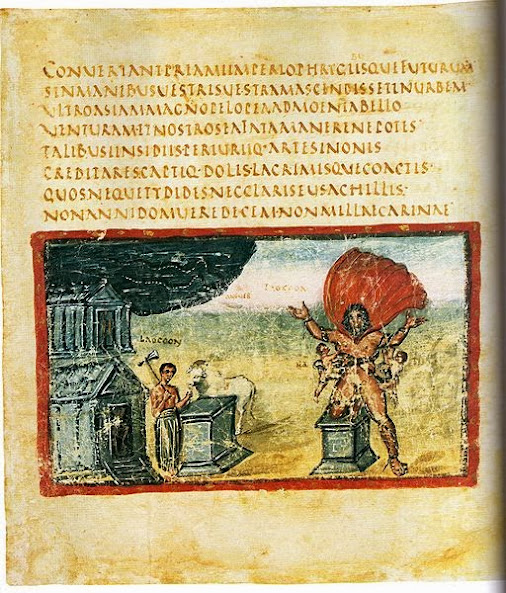 CONVERTANTPRIAMIIMPERIOPHRYGIISQUEFUTURUM
SINMANIBUSUESTRISUESTRAMASCENDISSETINURBEM
ULTROASIAMMAGNOPELOPEAADMOENIABELLO
VENTURAMETNOSTROSEAFATAMANERENEPOTES
TALIBUSINSIDIISPERIURIIQ·ARTESINONIS
CREDITARESCAPTIQ·DOLISLACRIMISQUECOACTIS
QUOSNEQUETYDIDESNECLARISEUSACHILLIS·
NONANNIDOMUEREDECEM·NONMILLECARINAE
LAOCOON
LAOCOON